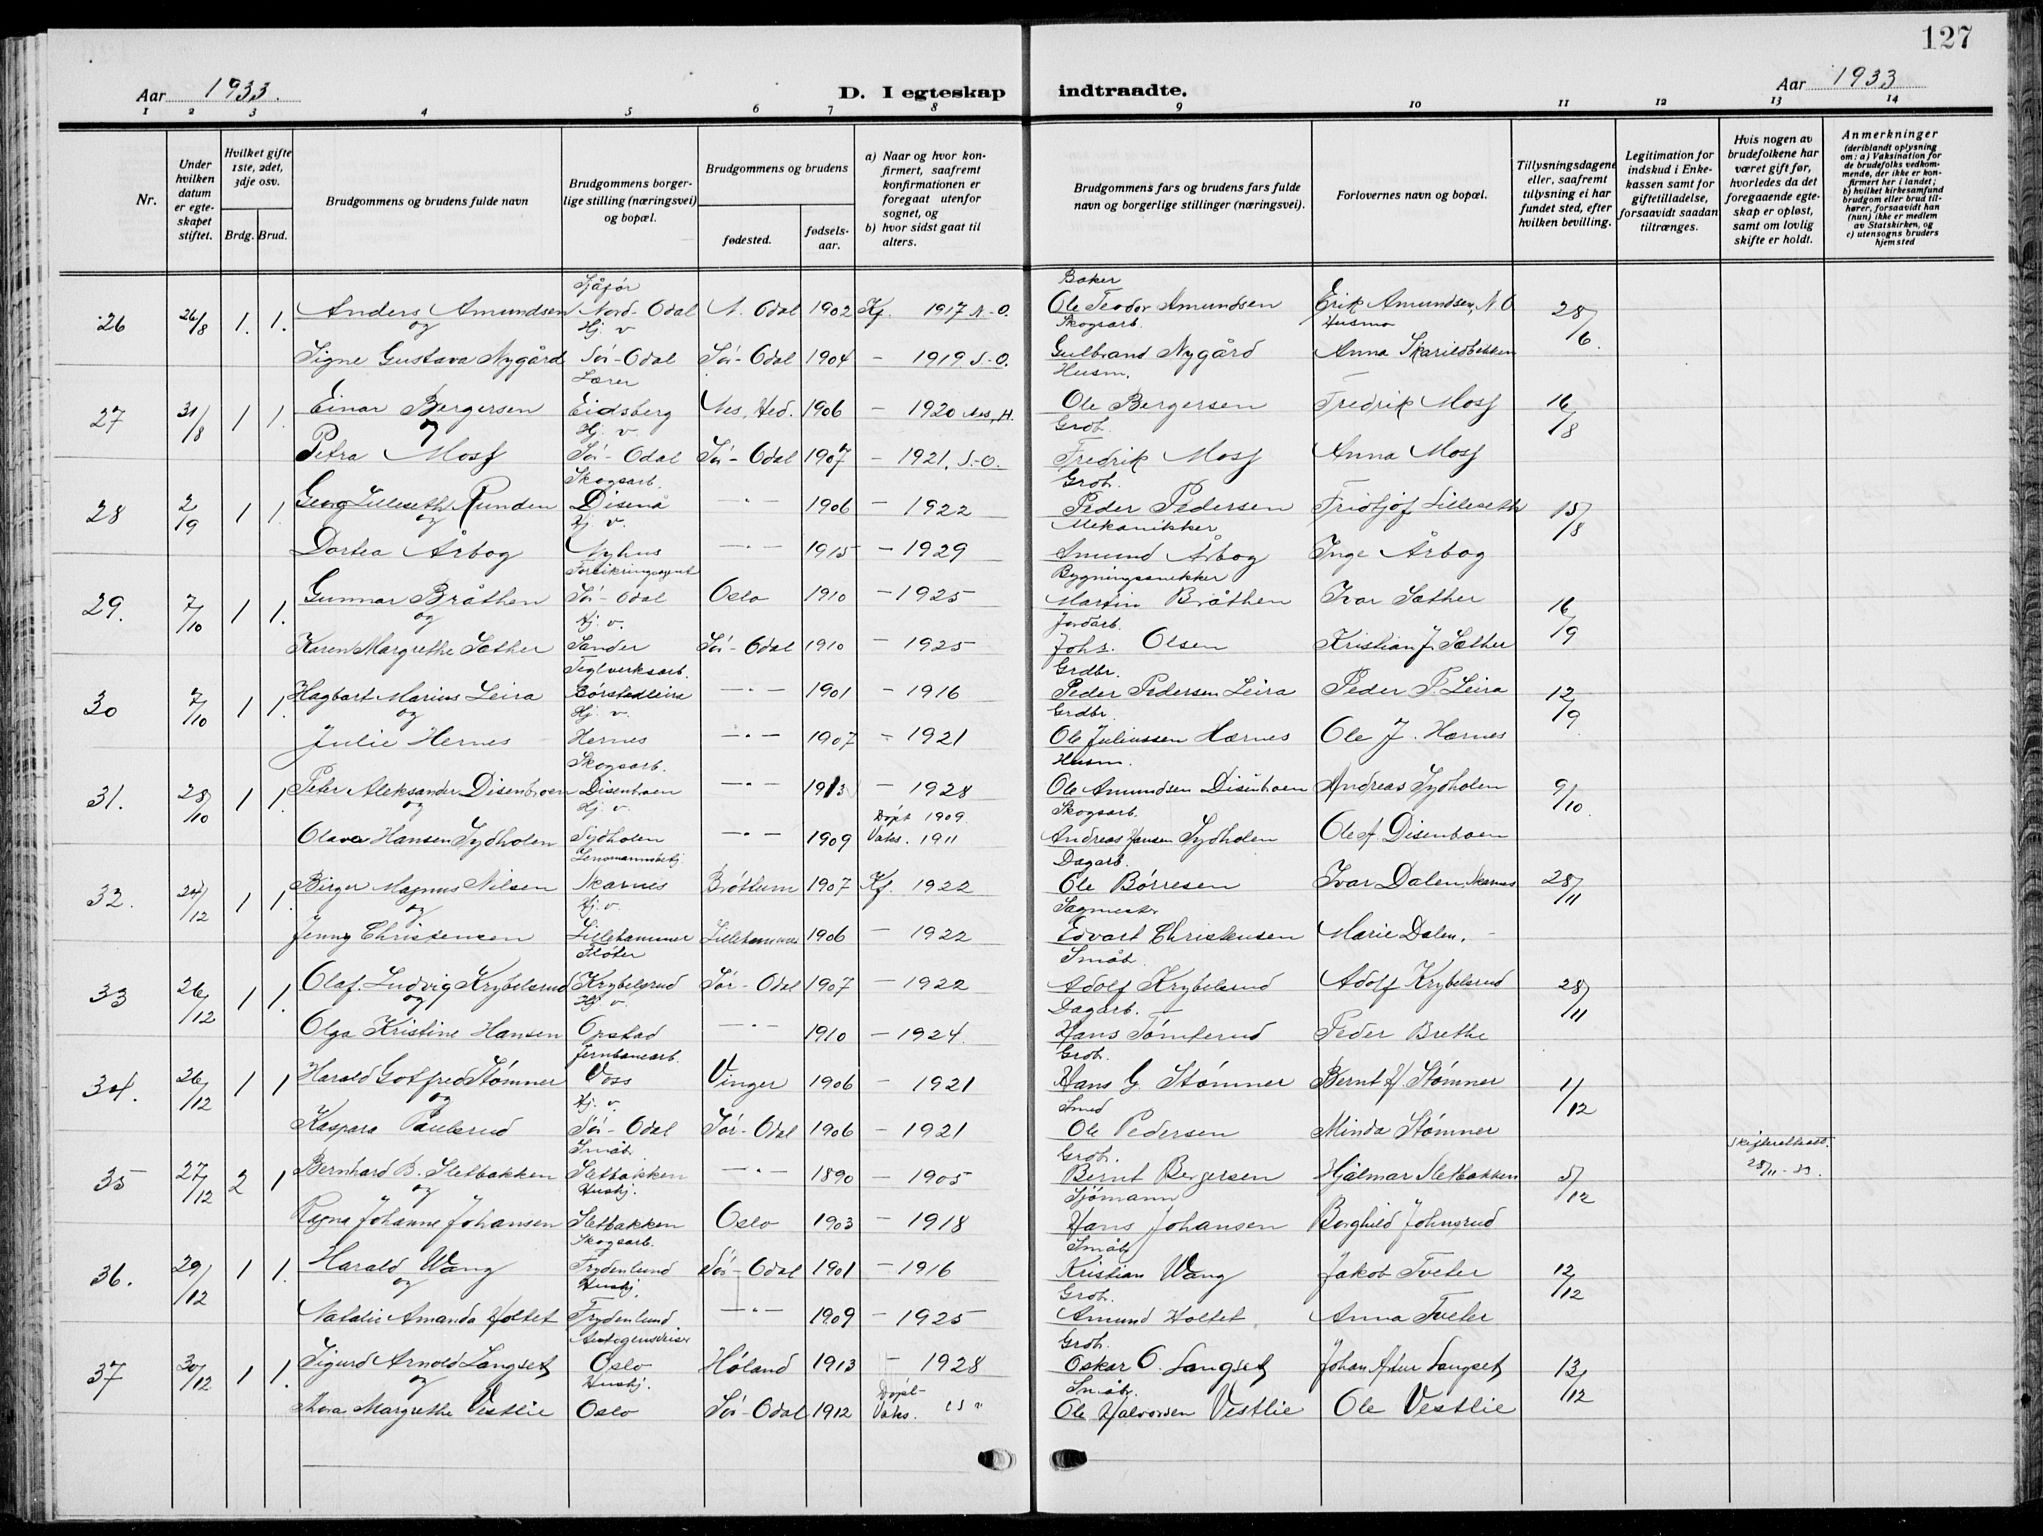 127
Aar 1933. D. I egteskap indtraadte. Aar 1933
1 2 3 4 5 6 7 8 9 10 11 12 13 14
Nr.
Under hvilken datum er egteskapet stiftet.
Hvilket gifte 1ste, 2det, 3dje osv.
Brdg. Brud.
Brudgommens og brudens fulde navn
Brudgommens borgerlige stilling (næringsvei) og bopæl.
Brudgommens og brudens
fødested. fødselsaar.
a) Naar og hvor konfirmert, saafremt konfirmationen er foregaat utenfor sognet, og
b) hvor sidst gaat til alters.
Brudgommens fars og brudens fars fulde navn og borgerlige stillinger (næringsvei).
Forlovernes navn og bopæl.
Tillysningsdagene eller, saafremt tillysning ei har fundet sted, efter hvilken bevilling.
Legitimation for indskud i Enkekassen samt for giftetilladelse, forsaavidt saadan tiltrænges.
Hvis nogen av brudefolkene har været gift før, hvorledes da det foregaaende egteskap er opløst, samt om lovlig skifte er holdt.
Anmerkninger (deriblandt oplysning om: a) Vaksination for de brudefolks vedkommende, der ikke er konfirmert her i landet; b) hvilket kirkesamfund brudgom eller brud tilhører, forsaavidt han (hun) ikke er medlem av Statskirken, og c) utensogns bruders hjemsted
Sjåfør Baker
26 26/8 1. 1. Anders Amundsen Nord-Odal N. Odal 1902 Kf. 1917 N.-O. Ole Teodor Amundsen Erik Amundsen, N.O 28/6.
og Hj. v Skogsarb. Husmo
Signe Gustava Nygård Sør-Odal Sør-Odal 1904 - 1919 S.-O. Gulbrand Nygård Anna Skarildbekken
Lærer Husm.
27 31/8 1 1. Einar Bergersen Eidsberg Nes, Hed. 1906 - 1920 Nes, H. Ole Bergersen Fredrik Moss 16/8
og Hj. v. Grdb.
Petra Moss Sør-Odal Sør-Odal 1907 - 1921. S.-O. Fredrik Moss Anna Moss
Skogsarb. Grdb.
28 2/9 1 1. Georg Lilleseth Runden Disenå - " - 1906 - 1922 Peder Pedersen Fridtjof Lilleseth 15/8
og Hj v. Mekanikker
Dortea Årbog Nyhus - " - 1915 - 1929 Amund Årbog Inge Årbog
Forsikringsagent Bygningssnekker
29. 7/10 1 1. Gunnar Bråthen Sør-Odal Oslo 1910 - 1925 Martin Bråthen Ivar Sæther 16/9
og Hj. v. Jordarb.
Karen Margrethe Sæther Sander Sør-Odal 1910 - 1925 Johs. Olsen Kristian J. Sæther
Teglverksarb. Grdbr.
30 7/10 1 1. Hagbart Marius Leira Børstadleira - " - 1901 - 1916 Peder Pedersen Leira Peder P. Leira 12/9
og Hj. v. Grdbr.
Julie Hernes Hernes - " - 1907 - 1921 Ole Juliussen Hærnes Ole J. Hærnes
Skogsarb. Husm.
31. 28/10 1 1. Peter Aleksander Disenbroen Disenbroen - " - 1913 - 1928 Ole Amundsen Disenbroen Andreas Sydholen 9/10
og Hj. v. Døpt 1909. Skogsarb.
Olava Hansen Sydholen Sydholen - " - 1909 Vaks. 1911 Andreas Hansen Sydholen Olaf Disenbroen
Lensmannsbetj. Dagarb.
32. 24/12 1 1. Birger Magnus Nilsen Skarnes Brøttum 1907 Kf. 1922 Ole Børresen Ivar Dalen Skarnes 28/11
og Hj. v. Sagmester
Jenny Christensen Lillehammer Lillehammer 1906 - 1922 Edvart Christensen Marie Dalen.
Fløter Småb.
33 26/12 1 1. Olaf Ludvig Krybelsrud Krybelsrud Sør-Odal 1907 - 1922 Adolf Krybelsrud Adolf Krybelsrud 28/11
og Hj v. Dagarb.
Olga Kristine Hansen Opstad - " - 1910 - 1924. Hans Tømterud Peder Brethe
Jernbanearb. Grdb.
34. 26/12 1 1. Harald Gotfred Stømner Voss Vinger 1906 - 1921 Hans G. Stømner Bernt H. Stømner 1/12
og Hj. v. Smed
Kaspara Paulsrud Sør-Odal Sør-Odal 1906 - 1921 Ole Pedersen Minda Stømner
Småbr. Grdb. Skifteattest
35 27/12 2 1 Bernhard B. Sletbakken Sletbakken - " - 1890 - 1905 Bernt Bergersen Hjalmar Sletbakken 5/12 28/11-33.
og Hushj. Sjømann
Ragna Johanne Johansen Sletbakken Oslo 1903 - 1918 Hans Johansen Borghild Johnsrud
Skogsarb. Småbr
36. 29/12 1 1. Harald Wang Frydenlund Sør-Odal 1901 - 1916 Kristian Wang Jakob Tveter 12/12
og Hushj. Grdb.
Natalie Amanda Holtet Frydenlund - " - 1909 - 1925 Amund Holtet Anna Tveter
Grdb.
37 30/12 1 1. Sigurd Arnold Langset Oslo Høland 1913 - 1928 Oskar O. Langset Johan Langset 13/12
og Hushj. Døpt Småbr.
Thora Margrethe Vestlie Oslo Sør-Odal 1912 Vaks. Ole Halvorsen Vestlie Ole Vestlie